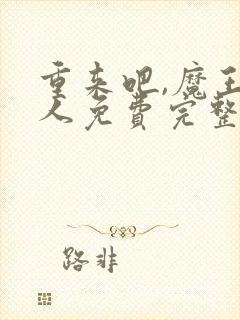 重来吧,魔王
人免费完整
路非